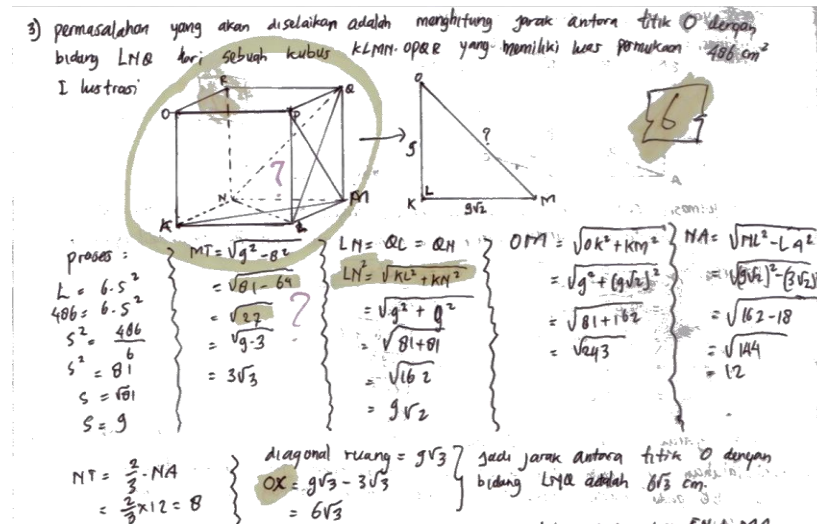 3) permasalahan yang akan diselaikan adalah menghitung jarak antara titik O dengan
bidang LNQ dari sebuah kubus KLMN.OPQR yang memiliki luas permukaan 486 cm²
I lustrasi
R
Q
O
P
N
M
K
L
?
O
9
?
K
L
M
9√2
6
A
proses :
L = 6.s²
486 = 6.s²
s² = 486/6
s² = 81
s = √81
s = 9
MT = √9²-8²
= √81-64
= √27
= √9.3
= 3√3
?
LN = QL = QN
LN² = √KL²+KN²
= √9²+9²
= √81+81
= √162
= 9√2
OM = √OK²+KM²
= √9²+(9√2)²
= √81+162
= √243
NA = √NL²-LA²
= √(9√2)²-(3√2)
= √162-18
= √144
= 12
NT = 2/3.NA
= 2/3×12 = 8
diagonal ruang = 9√3
OX = 9√3 - 3√3
= 6√3
Jadi jarak antara titik O dengan
bidang LNQ adalah 6√3 cm.